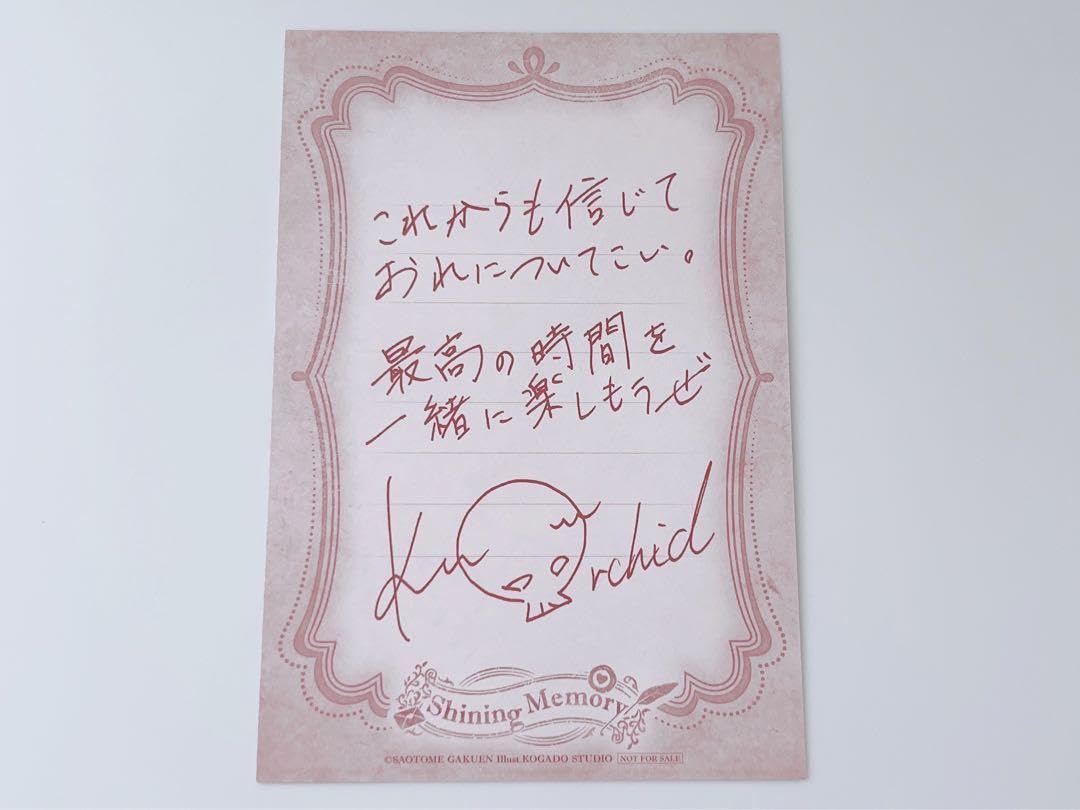 これからも信じて
おれについてこい。
最高の時間を
一緒に楽しもうぜ
Orchid
Shining Memory
©SAOTOME GAKUEN Illust.KOGADO STUDIO NOT FOR SALE